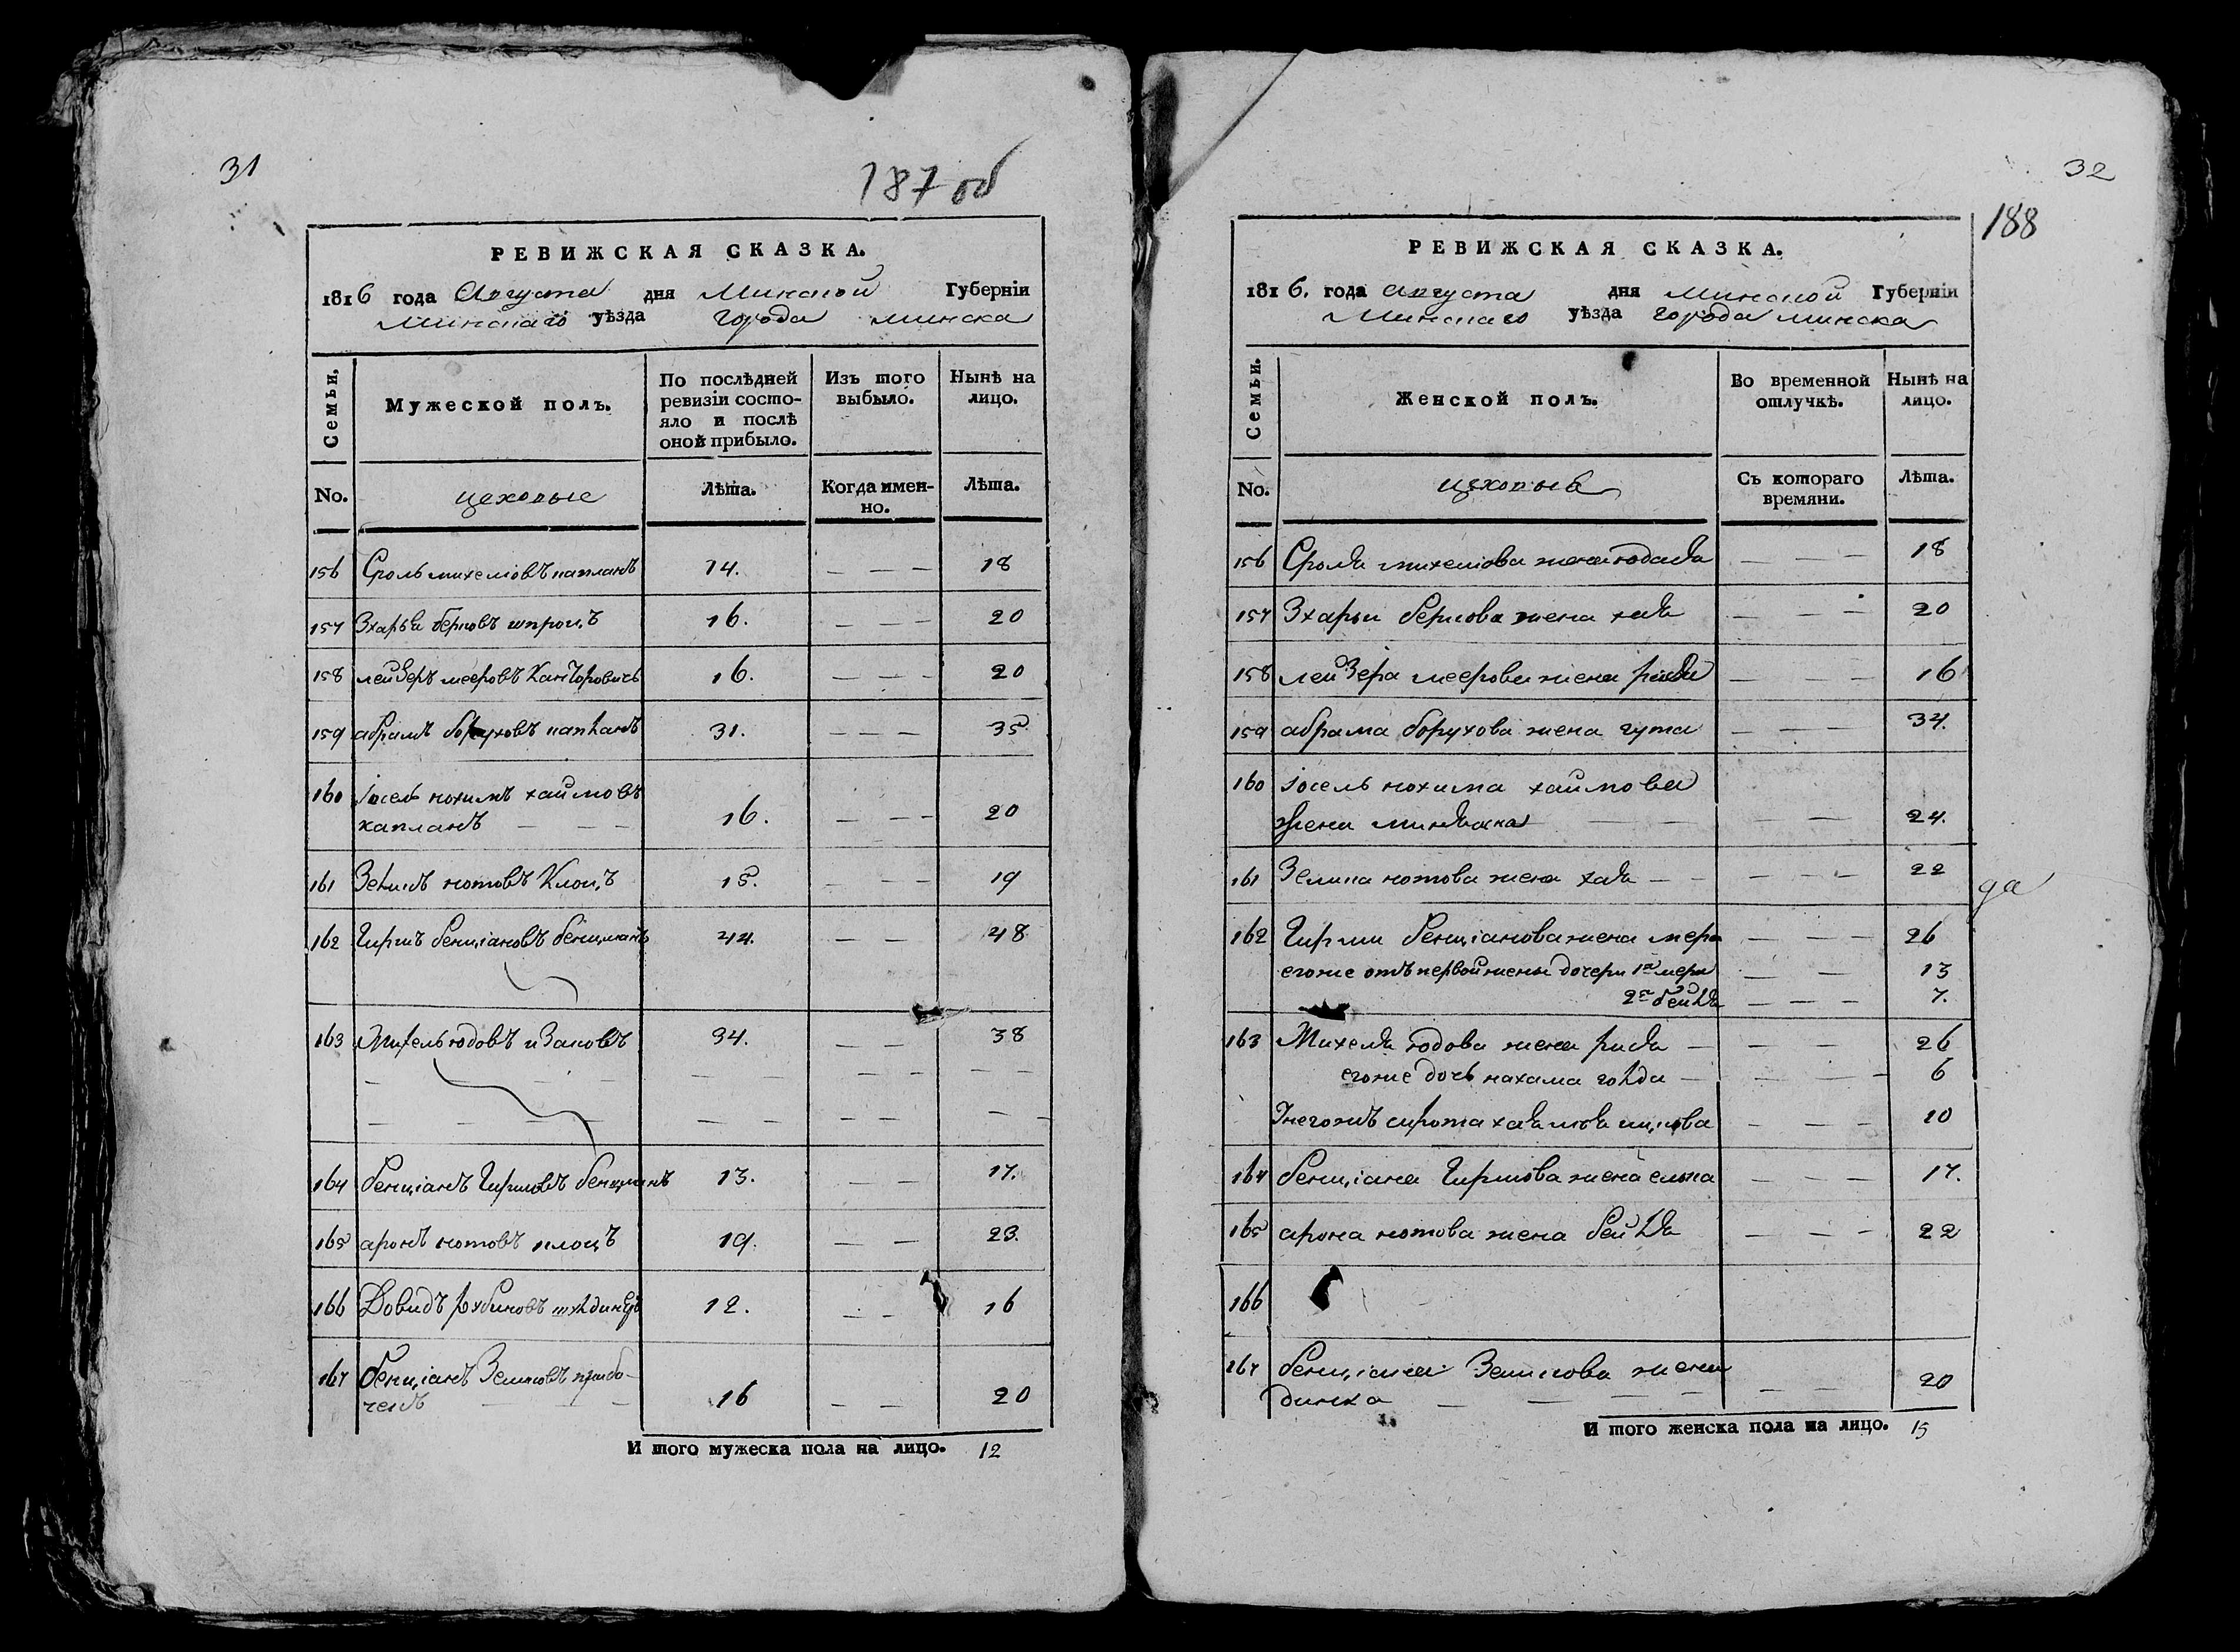 31
187 об
РЕВИЖСКАЯ СКАЗКА.
1816 года Августа дня Минской Губерніи
Минскаго уѣзда города минска
Семьи. Мужеской полъ. По послѣдней ревизіи состояло и послѣ оной прибыло. Изъ того выбыло. Нынѣ на лицо.
No. цеховые Лѣта. Когда именно. Лѣта.
156 Сроль михелювъ капланъ 14. — — — 18
157 Зхарья берковъ 16. — — — 20
158 лейзеръ мееровъ Канторовичь 16. — — — 20
159 абрамъ боруховъ капланъ 31. — — — 35
160 іосель нохимъ хаимовъ
капланъ — — — 16. — — — 20
161 Зелигъ нотовъ Клоцъ 15. — — — 19
162 Гиршъ бенціановъ бенцманъ 44. — — 48
163 Михель юдовъ изаковъ 34. — — 38
164 бенціанъ Гиршовъ бенцманъ 13. — — 17.
165 аронъ нотовъ клоцъ 19. — — 23.
166 Довидъ рубиновъ 12. — — 16
167 бенціанъ Зелиговъ
16 — — 20
И того мужеска пола на лицо. 12
32
188
РЕВИЖСКАЯ СКАЗКА.
1816. года августа дня минской Губерніи
Минскаго уѣзда города минска
Семьи. Женской полъ. Во временной отлучкѣ. Нынѣ на лицо.
No. цеховые Съ котораго времяни. Лѣта.
156 Сроля михелюва жена юдася — — — 18
157 Зхарьи беркова жена хая — — — 20
158 лейзера меерова жена рися — — — 16
159 абрама борухова жена гута — — — 34.
160 іосель нохима хаимова
жена — — — — 24.
161 Зелига нотова жена хая — — — — — 22
162 Гирши бенціанова жена мера — — — 26
егоже отъ первой жены дочери 1я мера — — 13
2я бейля — — — 7.
163 Михеля юдова жена рися — — — — 26
егоже дочь нахама голда — — — 6
У негожъ сирота — — — 10
164 бенціана Гиршова жена елька — — — 17.
165 арона нотова жена бейля — — — 22
166
167 бенціана Зелигова жена
динка — — — — — 20
И того женска пола на лицо. 15
да